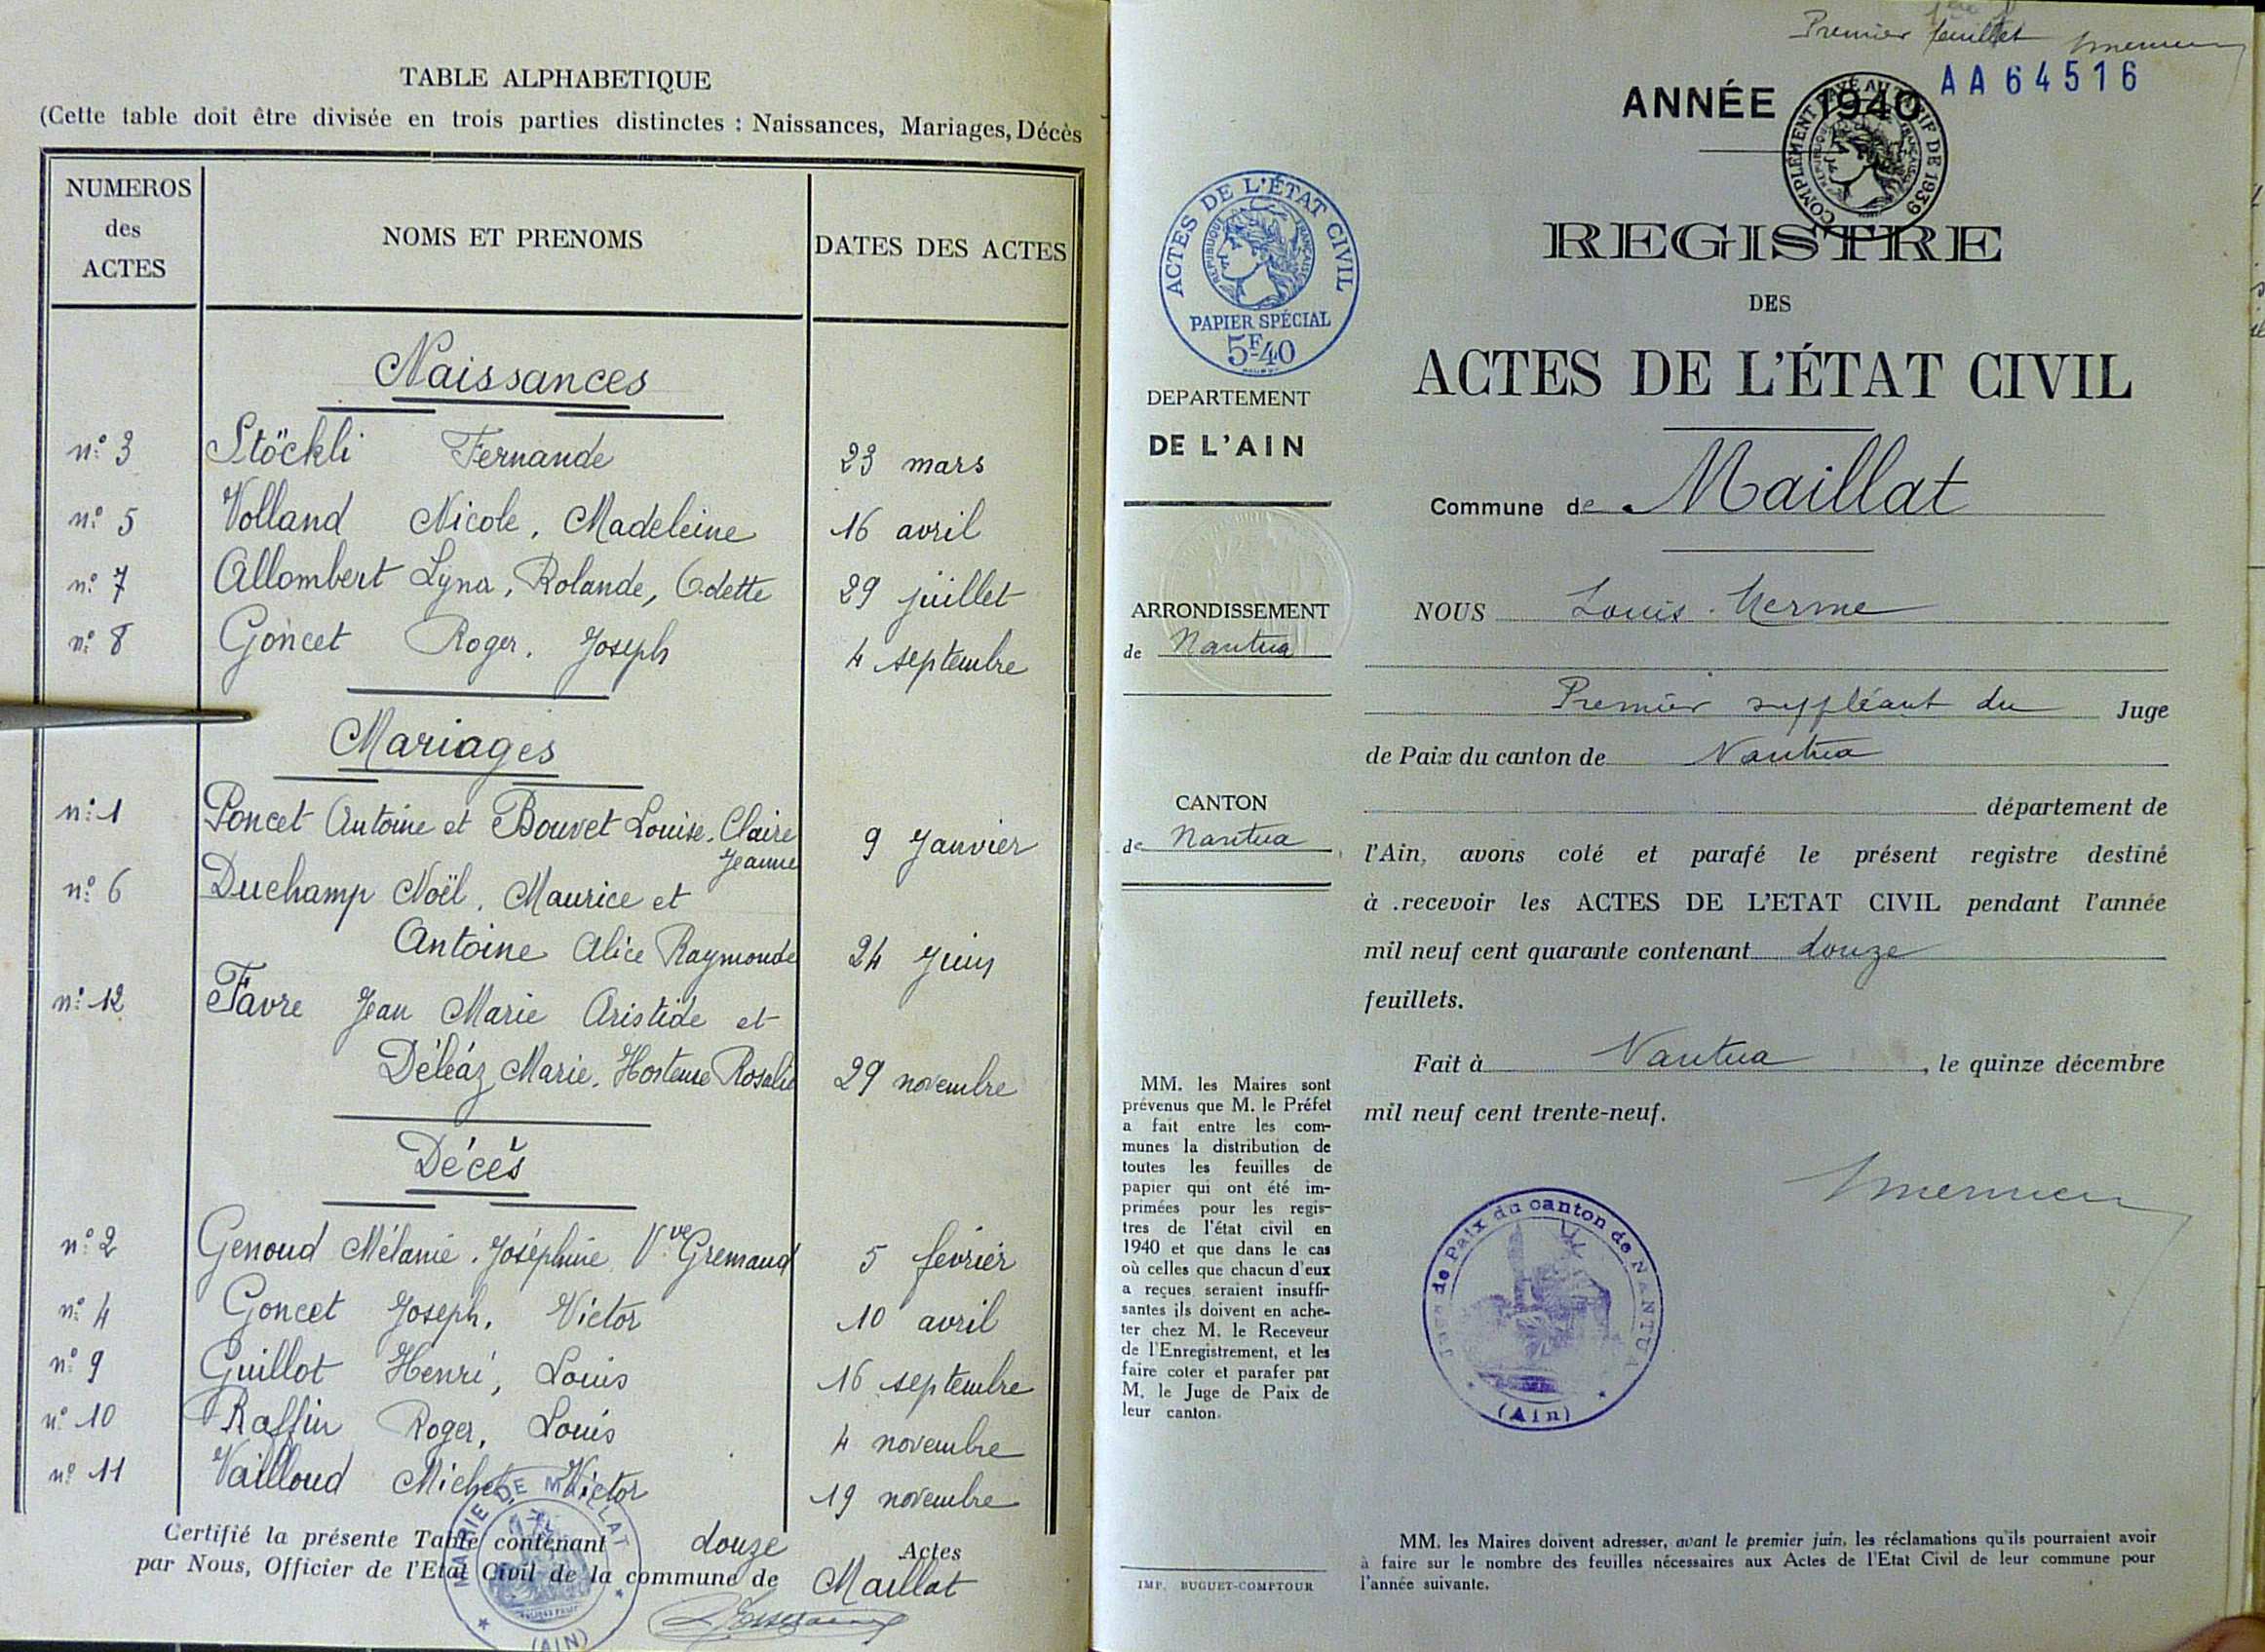 TABLE ALPHABETIQUE
(Cette table doit être divisée en trois parties distinctes : Naissances, Mariages, Décès
NUMEROS des ACTES
NOMS ET PRENOMS
DATES DES ACTES
Naissances
n° 3 Stöckli Fernande 23 mars
n° 5 Volland Nicole, Madeleine 16 avril
n° 7 Allombert Lyna, Rolande, Odette 29 juillet
n° 8 Goncet Roger, Joseph 4 septembre
Mariages
n° 1 Poncet Antoine et Bouvet Louise, Claire
Jeanne 9 Janvier
n° 6 Duchamp Noël, Maurice et
Antoine Alice Raymonde 24 Juin
n° 12 Favre Jean Marie Aristide et
Déléaz Marie, Hortense Rosalie 29 novembre
Décès
n° 2 Genoud Mélanie, Joséphine Vve Gremaud 5 février
n° 4 Goncet Joseph, Victor 10 avril
n° 9 Guillot Henri, Louis 16 septembre
n° 10 Raffin Roger, Louis 4 novembre
n° 11 Vailloud Michel, Victor 19 novembre
Certifié la présente Table contenant douze Actes
par Nous, Officier de l'Etat Civil de la commune de Maillat
MAIRIE DE MAILLAT
(AIN)
Premier feuillet
AA64516
ANNÉE 1940
COMPLÉMENT PAYÉ AU TARIF DE 1939
RÉPUBLIQUE FRANÇAISE
ACTES DE L'ÉTAT CIVIL
REPUBLIQUE FRANÇAISE
PAPIER SPÉCIAL
5F40
REGISTRE
DES
ACTES DE L'ÉTAT CIVIL
Commune de Maillat
DEPARTEMENT
DE L'AIN
ARRONDISSEMENT
de Nantua
CANTON
de Nantua
MM. les Maires sont
prévenus que M. le Préfet
a fait entre les com-
munes la distribution de
toutes les feuilles de
papier qui ont été im-
primées pour les regis-
tres de l'état civil en
1940 et que dans le cas
où celles que chacun d'eux
a reçues seraient insuffi-
santes ils doivent en ache-
ter chez M. le Receveur
de l'Enregistrement, et les
faire coter et parafer par
M. le Juge de Paix de
leur canton.
IMP. BUGUET-COMPTOUR
NOUS Louis Merme
Premier suppléant du Juge
de Paix du canton de Nantua
département de
l'Ain, avons coté et parafé le présent registre destiné
à .recevoir les ACTES DE L'ETAT CIVIL pendant l'année
mil neuf cent quarante contenant douze
feuillets.
Fait à Nantua, le quinze décembre
mil neuf cent trente-neuf.
Juge de Paix du canton de NANTUA
(Ain)
MM. les Maires doivent adresser, avant le premier juin, les réclamations qu'ils pourraient avoir
à faire sur le nombre des feuilles nécessaires aux Actes de l'Etat Civil de leur commune pour
l'année suivante.